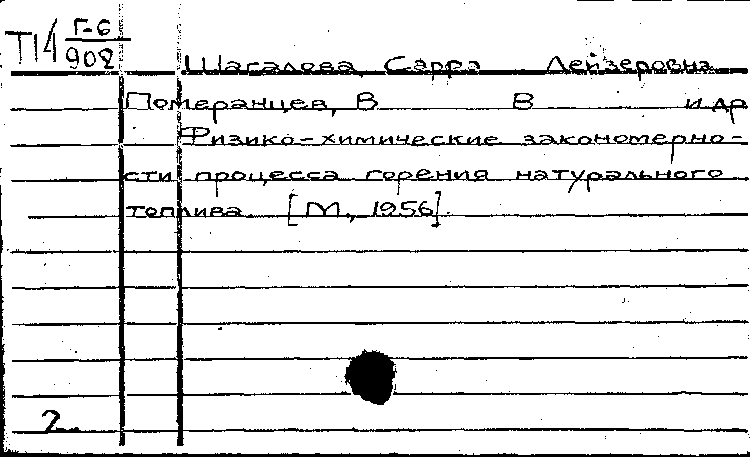 Т14 Г-6
908
Шагалова, Сарра Лейзеровна
Померанцев, В В и др
Физико-химические закономерно-
сти процесса горения натурального
топлива. [М., 1956].
2